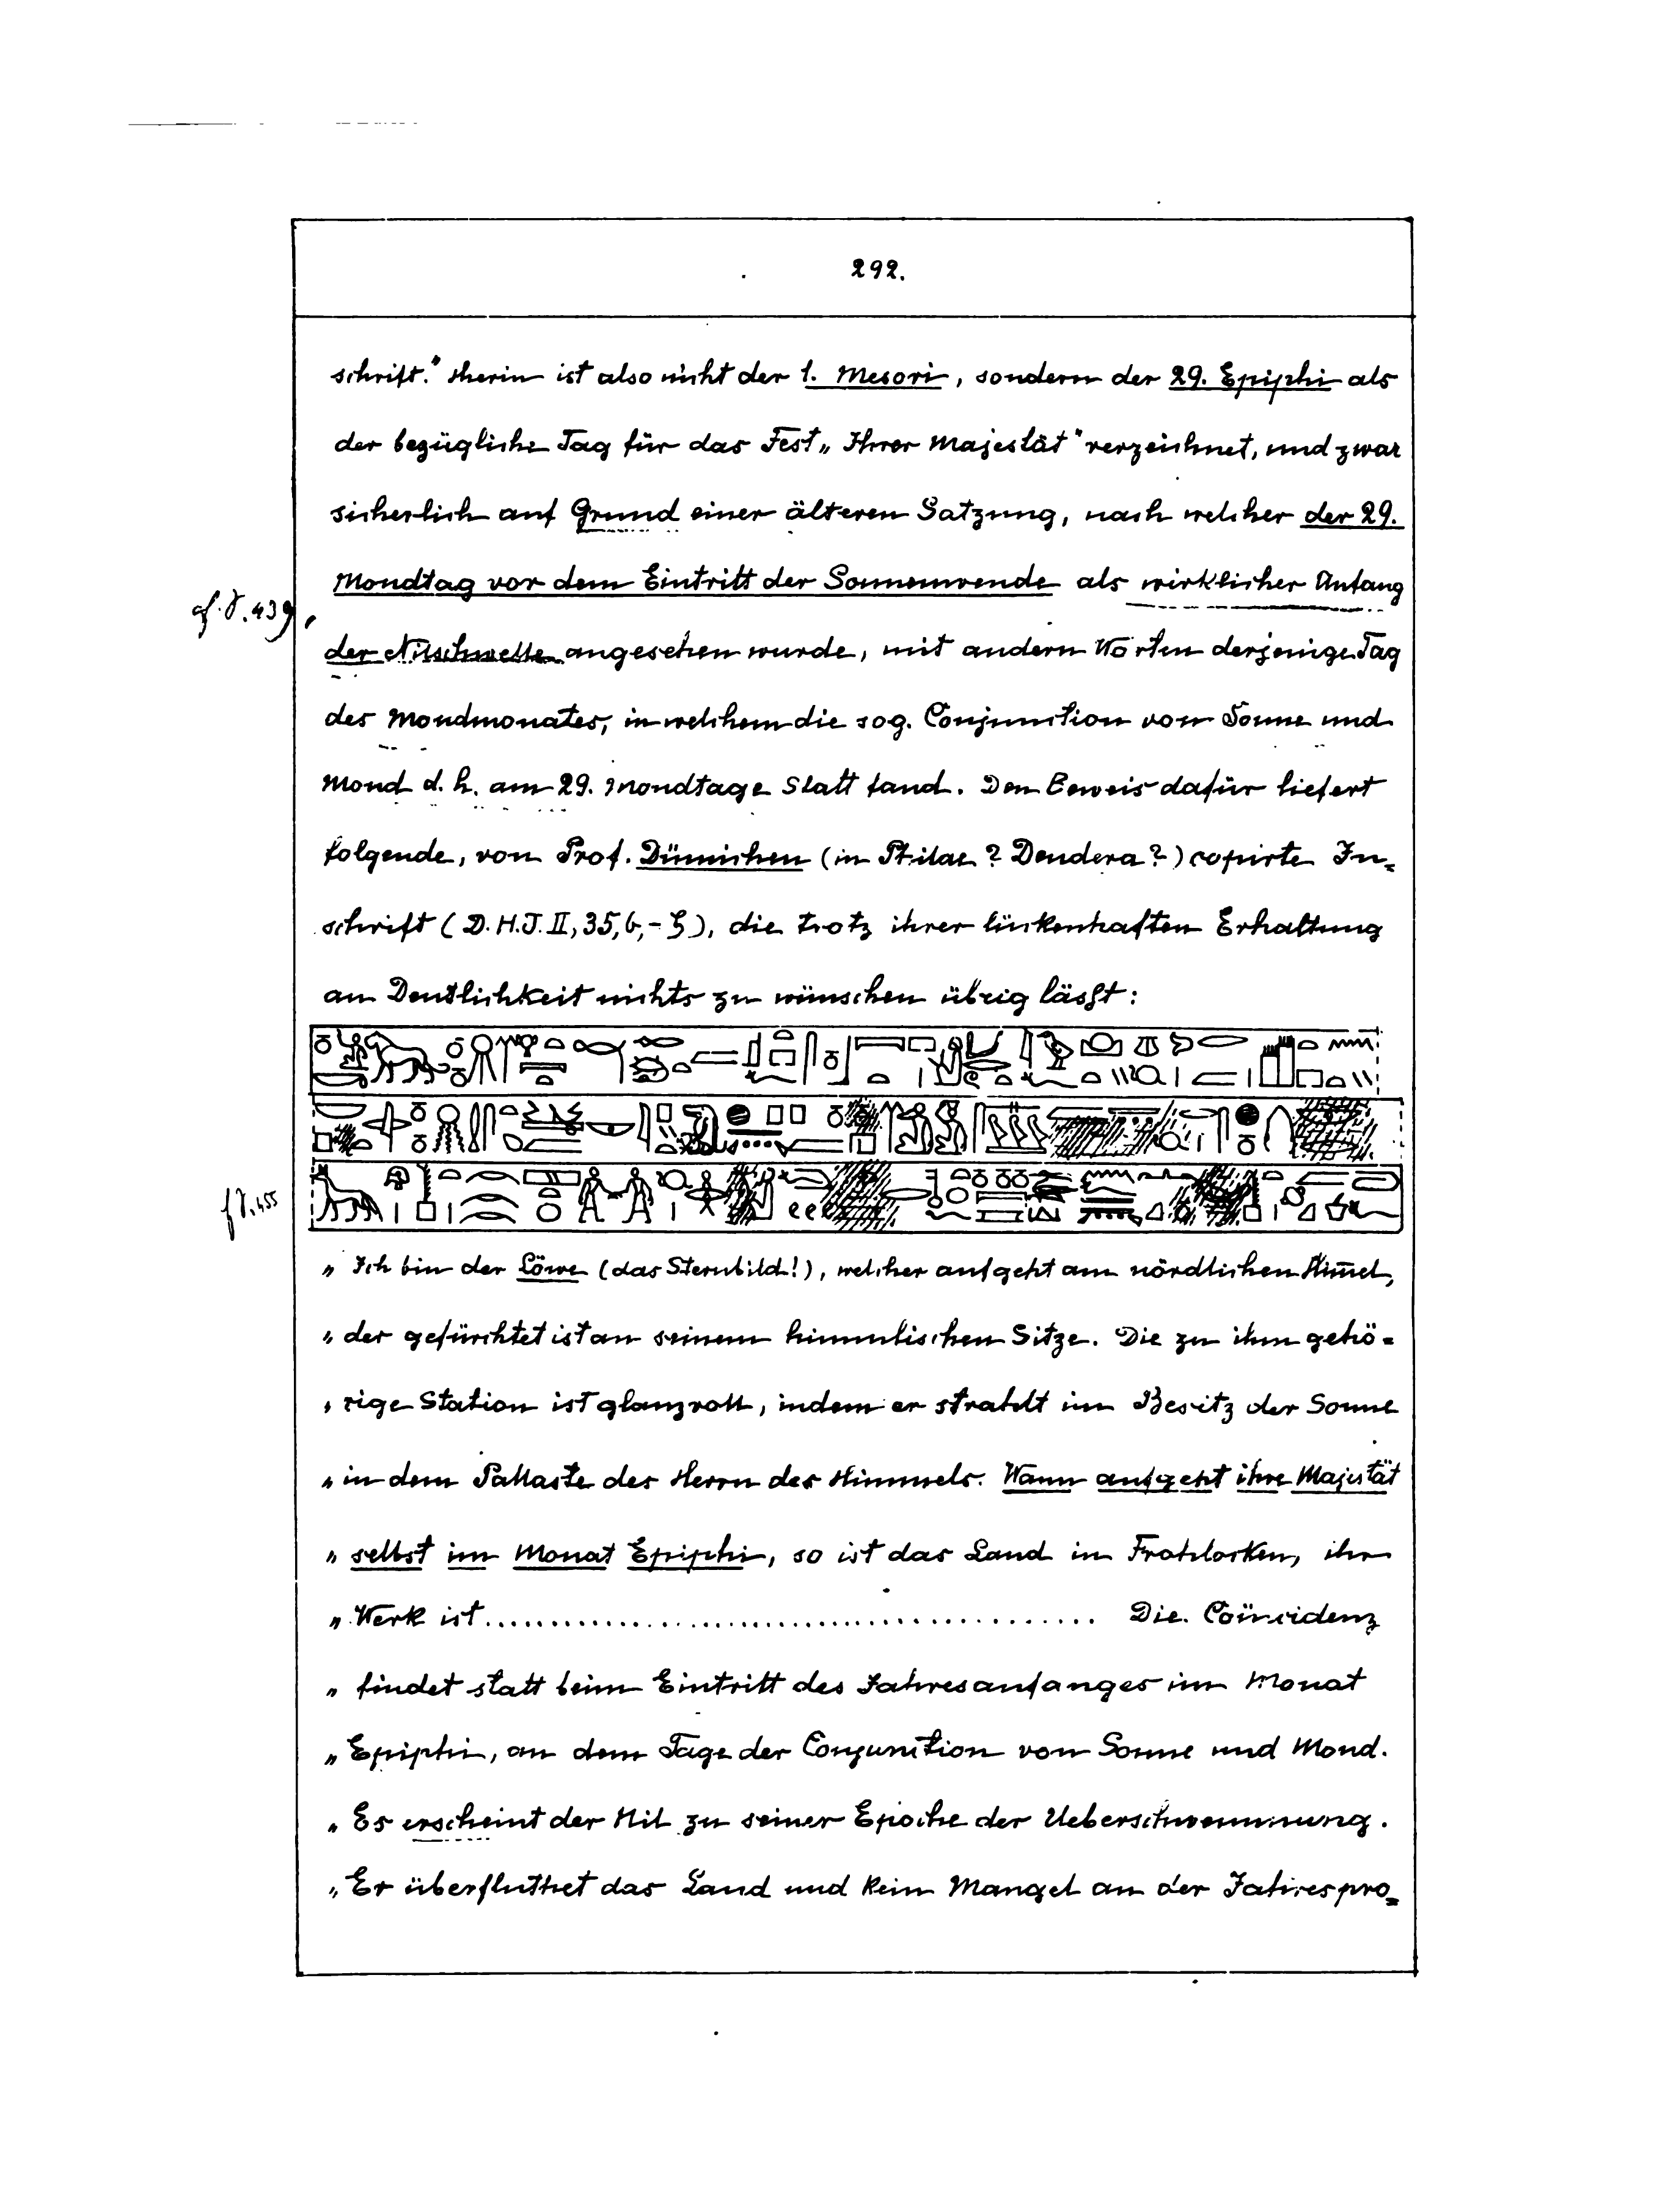 292.
schrift." Herin ist also nicht der 1. Mesori, sondern der 29. Epiphi als
der bezügliche Tag für das Fest „Ihrer Majestät" verzeichnet, und zwar
sicherlich auf Grund einer älteren Satzung, nach welcher der 29.
Mondtag vor dem Eintritt der Sonnenwende als wirklicher Anfang
cf. S. 439,
der Nilschwelle angesehen wurde, mit andern Worten derjenige Tag
des Mondmonates, in welchem die sog. Conjunction von Sonne und
Mond d. h. am 29. Mondtage Statt fand. Den Beweis dafür liefert
folgende, von Prof. Dümichen (in Philae? Dendera?) copirte In=
schrift (D. H. J. II, 35, b, - ), die trotz ihrer lückenhaften Erhaltung
an Deutlichkeit nichts zu wünschen übrig lässt:
S. 455
„ Ich bin der Löwe (das Sternbild!), welcher aufgeht am nördlichen Him̄el,
„ der gefürchtet ist an seinem himmlischen Sitze. Die zu ihm gehö=
„ rige Station ist glanzvoll, indem er strahlt im Besitz der Sonne
„ in dem Pallaste des Herrn des Himmels. Wann aufgeht ihre Majestät
„ selbst im Monat Epiphi, so ist das Land in Frohlocken, ihr
„ Werk ist .......................................... Die Coïncidenz
„ findet statt beim Eintritt des Jahresanfanges im Monat
„ Epiphi, an dem Tage der Conjunction von Sonne und Mond.
„ Es erscheint der Nil zu seiner Epoche der Ueberschwemmung.
„ Er überfluthet das Land und kein Mangel an der Jahrespro=